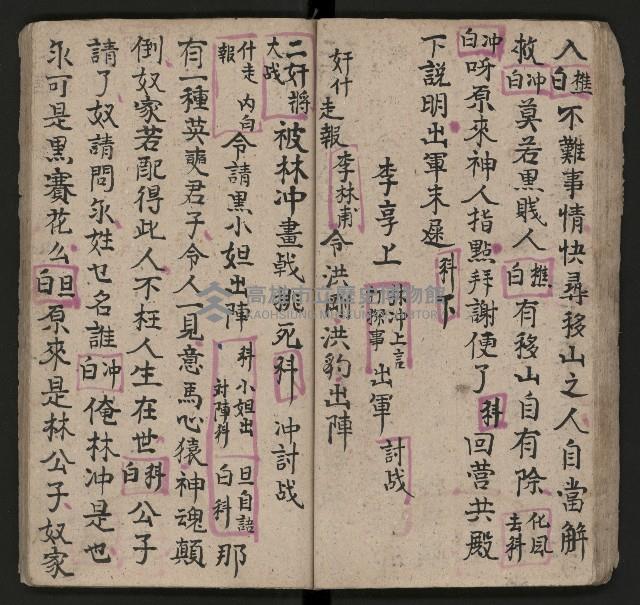 入樵白不難事情快尋移山之人自當解
救冲白莫若黑賤人樵白有移山自有除化凤去科
冲白呀原來神人指點拜謝便了科回营共殿
下説明出軍未遲科下
李享上林冲上言探事出軍討战
奸什走報李林甫令洪洪豹出陣
二奸將大战被林冲畫戟挑死科冲討战
什走報内白令請黑小妲出陣科小妲出対陣科旦自語白科那
有一種英爽君子令人一見意馬心猿神魂顛
倒奴家若配得此人不枉人生在世科白公子
請了奴請問尔姓乜名誰冲白俺林冲是也
尔可是黒賽花么旦白原來是林公子奴家
高雄市立歷史博物館
KAOHSIUNG MUSEUM OF HISTORY